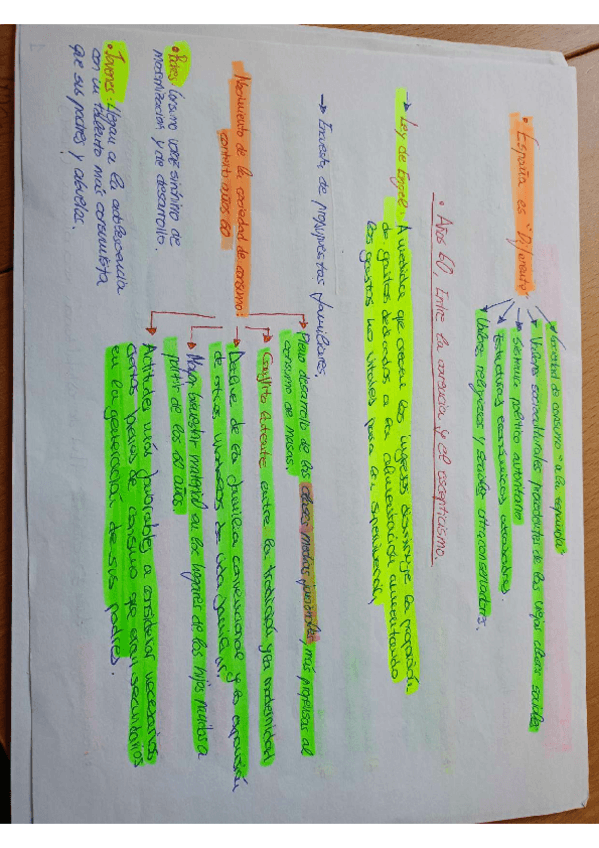 • España es "Diferente"
→ Sociedad de consumo "a la española"
→ Valores socioculturales procedentes de las viejas clases sociales
→ Sistema político autoritario
→ Estructuras económicas
→ Valores religiosos y sociales ultraconservadores.
• Años 60, Entre la carencia y el escepticismo.
→ Ley de Engel: A medida que crecen los ingresos disminuye la proporción
de gastos destinados a la alimentación aumentando
los gastos no vitales para la supervivencia.
→ Encuesta de presupuestos familiares.
Nacimiento de la sociedad de consumo:
contexto años 60
→ Pleno desarrollo de las clases medias funcionales más propensas al
consumo de masas.
→ Conflicto latente entre la tradición y la modernidad
→ Declive de la familia convencional y la expansión
de otras maneras de vida familiar.
→ Mayor bienestar material en los hogares de los hijos nacidos a
partir de los 60 años.
→ Actitudes más favorables a considerar necesarios
ciertos bienes de consumo que eran secundarios
en la generación de sus padres.
• Padres: Consumo como sinónimo de
modernización y de desarrollo.
• Jóvenes: Llegan a la adolescencia
con un talento más consumista
que sus padres y abuelos.